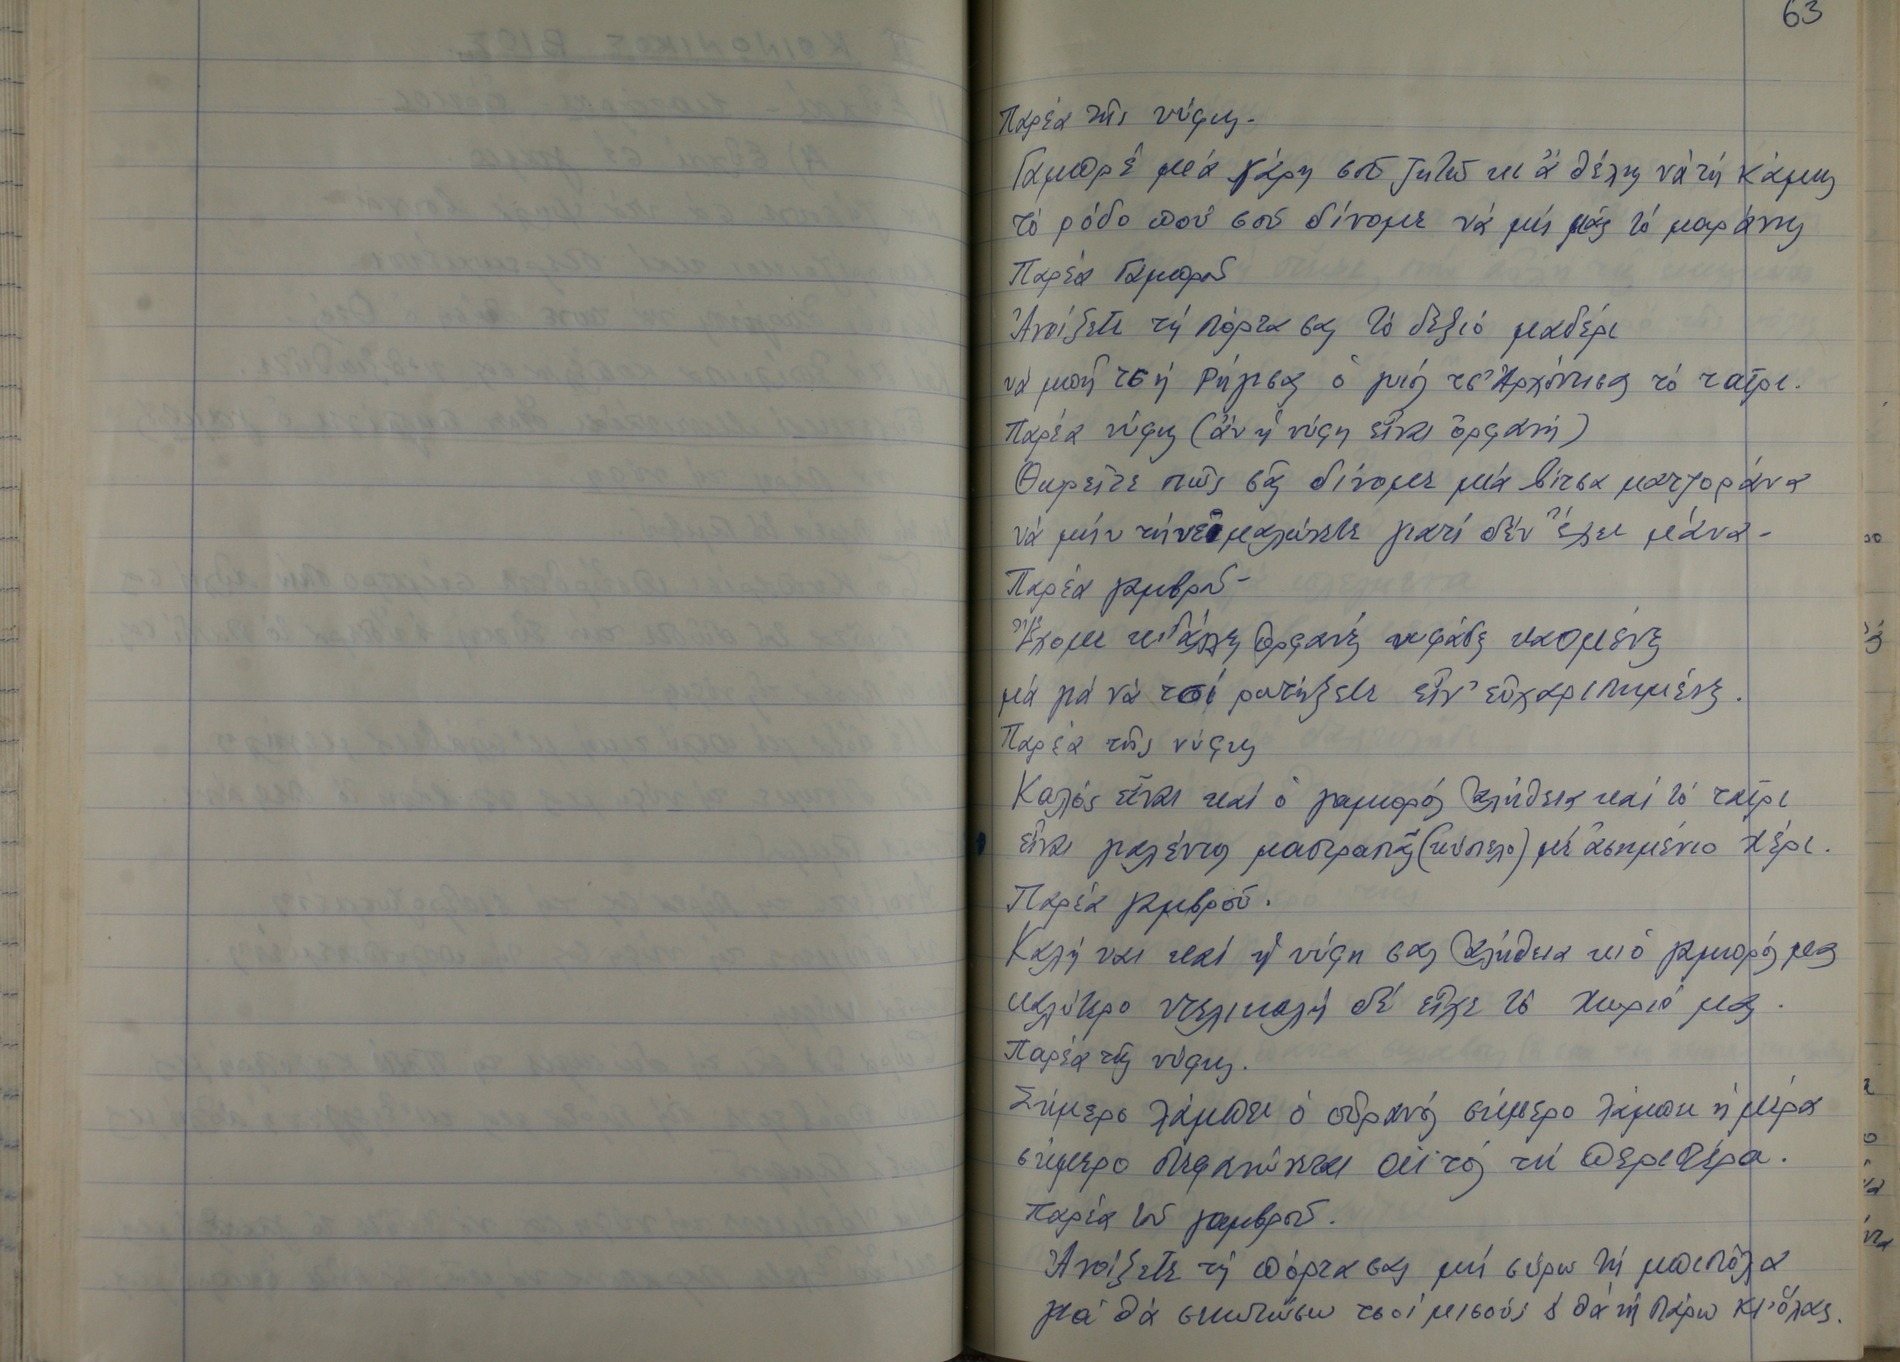 63
Παρέα τῆς νύφης.
Γαμπρέ μιά χάρη σοῦ ζητῶ κι ἄ θέλης νά τή κάμης
τό ρόδο πού σοῦ δίνομε νά μή μᾶς τό μαράνης
Παρέα Γαμπροῦ
Ἀνοίξετε τή πόρτα σας τό δεξιό μαδέρι
νά μπῆ τσῆ Ρήγισας ὁ γιός τσ' Ἀρχόντισας τό ταῖρι.
Παρέα νύφης (ἄν ἡ νύφη εἶναι ὀρφανή)
Θωρεῖτε πώς σᾶς δίνομε μιά βίτσα ματζοράνα
νά μήν τήνε μαλώνετε γιατί δέν ἔχει μάνα-
Παρέα γαμβροῦ-
Ἔχομε κι ἄλλες ὀρφανές καμένες
μά γιά νά τσί ρωτήξετε εἶν' εὐχαριστημένες.
Παρέα τῆς νύφης
Καλός εἶναι καί ὁ γαμπρός ἀλήθεια καί τό ταῖρι
εἶναι γυαλένιος μαστραπάς (κύπελο) μέ ἀσημένιο χέρι.
Παρέα γαμβροῦ.
Καλή ναι καί ἡ νύφη σας ἀλήθεια κι ὁ γαμπρός μας
καλύτερο ντελικανή δέ εἶχε τό χωριό μας.
Παρέα τῆς νύφης.
Σήμερο λάμπει ὁ οὐρανός σήμερο λάμπει ἡ μέρα
σήμερο στεφανώνεται ἀϊτός τή περιστέρα.
Παρέα τοῦ γαμβροῦ.
Ἀνοίξετε τή πόρτα σας μή σύρω τή μπιστόλα
γιά θά σκοτώσω τσοί μισούς ἤ θά τή πάρω κι' ὅλας.